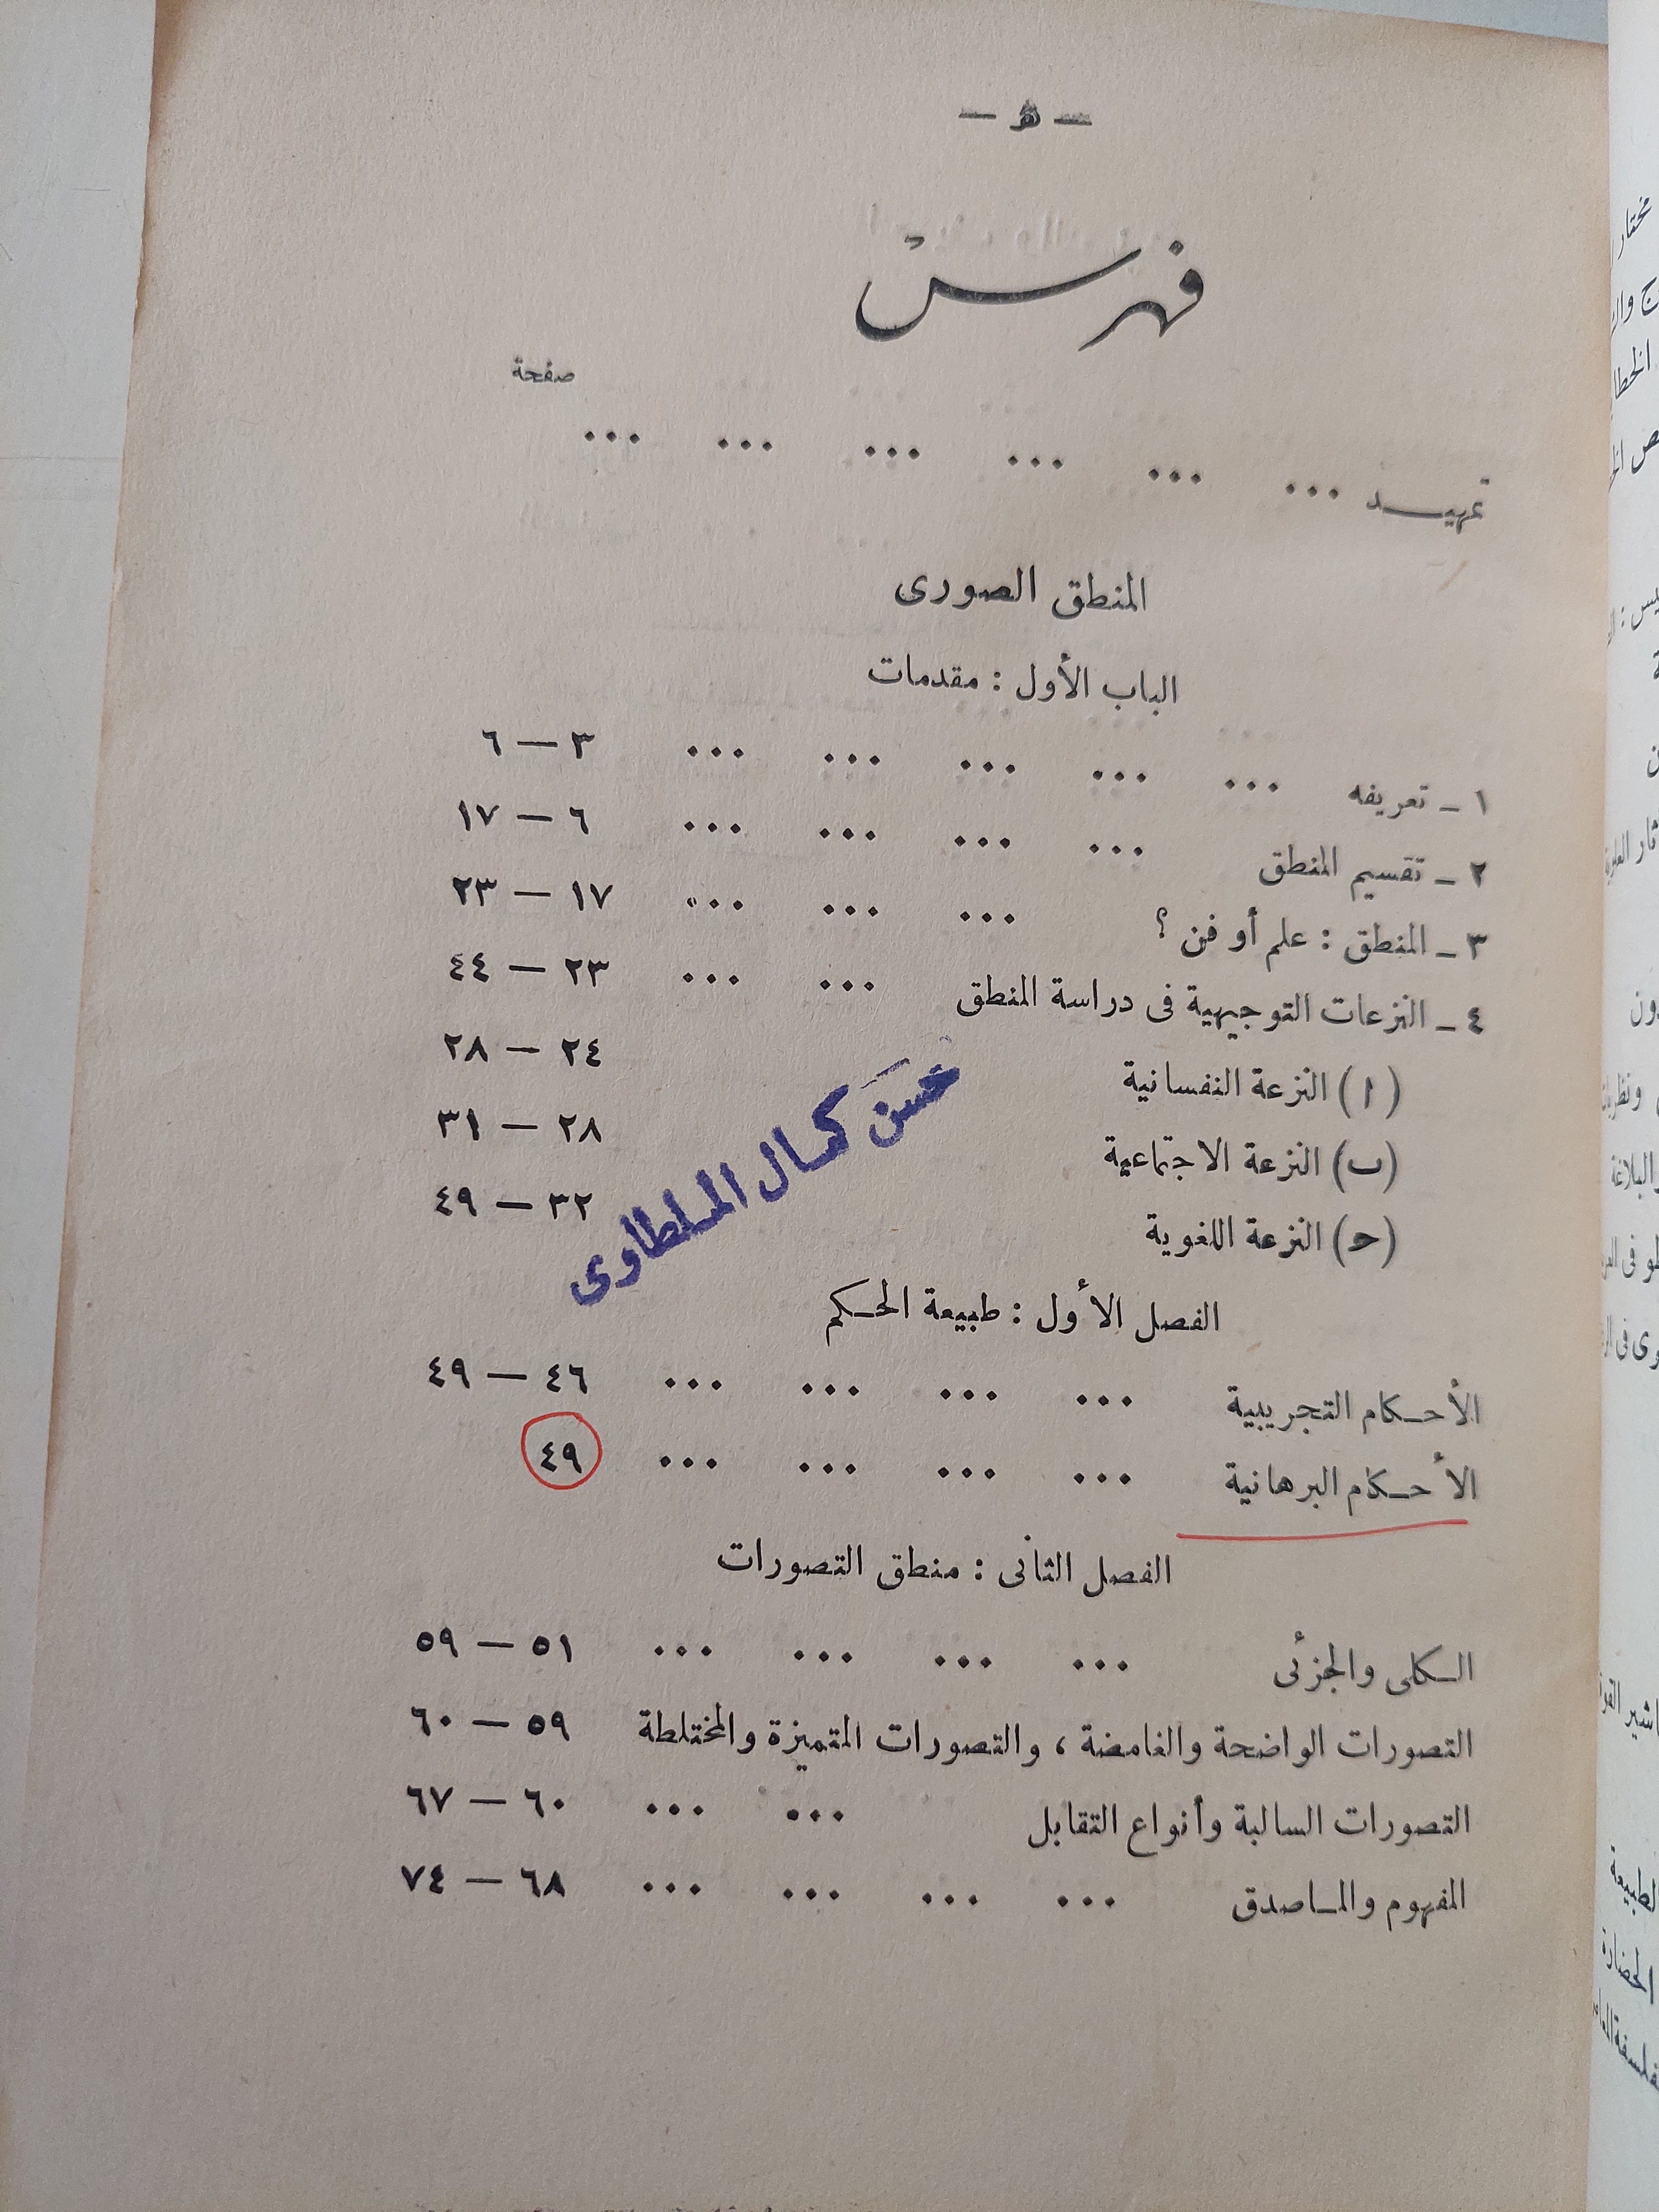 — ه —
فهرس
صفحة
تمهيد ... ... ... ... ... ...
المنطق الصورى
الباب الأول : مقدمات
١ ـ تعريفه ... ... ... ... ... ٣ — ٦
٢ ـ تقسيم المنطق ... ... ... ... ٦ — ١٧
٣ ـ المنطق : علم أو فن ؟ ... ... ... ١٧ — ٢٣
٤ ـ النزعات التوجيهية فى دراسة المنطق ... ... ٢٣ — ٤٤
( ا ) النزعة النفسانية ٢٤ — ٢٨
(ب) النزعة الاجتماعية ٢٨ — ٣١
(ح) النزعة اللغوية ٣٢ — ٤٩
حسن كمال الملطاوى
الفصل الأول : طبيعة الحكم
الأحكام التجريبية ... ... ... ... ٤٦ — ٤٩
الأحكام البرهانية ... ... ... ... ٤٩
الفصل الثانى : منطق التصورات
الكلى والجزئى ... ... ... ... ٥١ — ٥٩
التصورات الواضحة والغامضة ، والتصورات المتميزة والمختلطة ٥٩ — ٦٠
التصورات السالبة وأنواع التقابل ... ... ٦٠ — ٦٧
المفهوم والماصدق ... ... ... ... ٦٨ — ٧٤
مختار